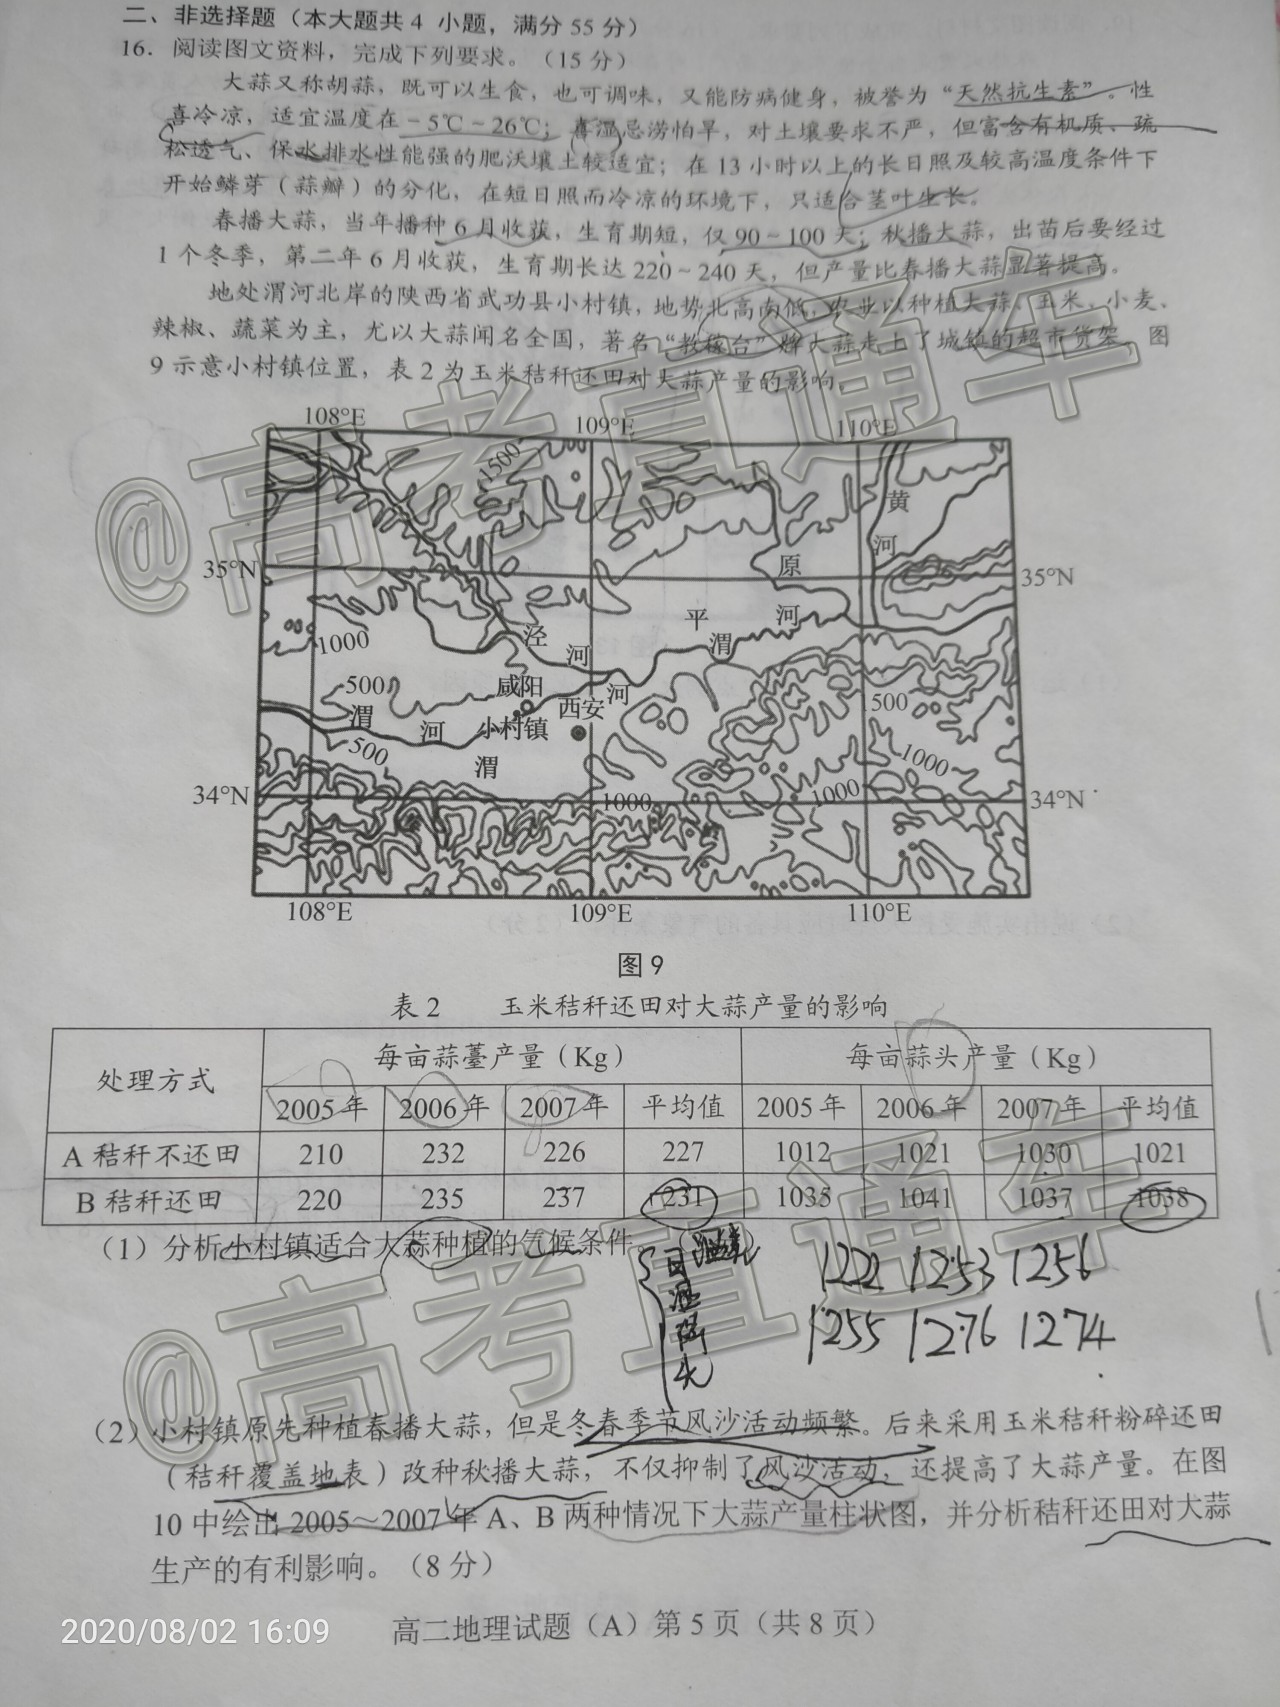 二、非选择题（本大题共4 小题，满分55分）
16．阅读图文资料，完成下列要求。（15分）
大蒜又称胡蒜，既可以生食，也可调味，又能防病健身，被誉为“天然抗生素”。性
喜冷凉，适宜温度在－5℃～26℃；喜湿忌涝怕旱，对土壤要求不严，但富含有机质、疏
松透气、保水排水性能强的肥沃壤土较适宜；在13小时以上的长日照及较高温度条件下
开始鳞芽（蒜瓣）的分化，在短日照而冷凉的环境下，只适合茎叶生长。
春播大蒜，当年播种6月收获，生育期短，仅90～100天；秋播大蒜，出苗后要经过
1个冬季，第二年6月收获，生育期长达220～240天，但产量比春播大蒜显著提高。
地处渭河北岸的陕西省武功县小村镇，地势北高南低，农业以种植大蒜、玉米、小麦、
辣椒、蔬菜为主，尤以大蒜闻名全国，著名“教稼台”牌大蒜走上了城镇的超市货架。图
9示意小村镇位置，表2为玉米秸秆还田对大蒜产量的影响。
108°E 109°E 110°E
1500
黄
河
35°N 原 35°N
平 河
渭
1000 泾
河
500 咸阳 河
渭 西安 1500
河 小村镇
500 渭 1000
34°N 1000 1000 34°N
108°E 109°E 110°E
图9
表2 玉米秸秆还田对大蒜产量的影响
处理方式 每亩蒜薹产量（Kg） 每亩蒜头产量（Kg）
2005年 2006年 2007年 平均值 2005年 2006年 2007年 平均值
A秸秆不还田 210 232 226 227 1012 1021 1030 1021
B秸秆还田 220 235 237 231 1035 1041 1037 1038
（1）分析小村镇适合大蒜种植的气候条件。
1222 1253 1256
1255 1276 1274
（2）小村镇原先种植春播大蒜，但是冬春季节风沙活动频繁。后来采用玉米秸秆粉碎还田
（秸秆覆盖地表）改种秋播大蒜，不仅抑制了风沙活动，还提高了大蒜产量。在图
10中绘出2005～2007年A、B两种情况下大蒜产量柱状图，并分析秸秆还田对大蒜
生产的有利影响。（8分）
高二地理试题（A）第5页（共8页）
2020/08/02 16:09
@高考直通车
@高考直通车